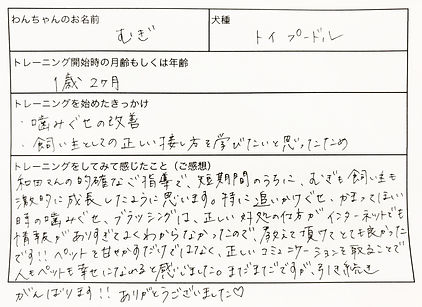 わんちゃんのお名前
むぎ
犬種
トイプードル
トレーニング開始時の月齢もしくは年齢
1歳 2ヶ月
トレーニングを始めたきっかけ
・噛みぐせの改善
・飼い主としての正しい接し方を学びたいと思ったため
トレーニングをしてみて感じたこと（ご感想）
和田さんの的確なご指導で、短期間のうちに、むぎも飼い主も
激的に成長したように思います。特に追いかけぐせ、かまってほしい
時の噛みぐせ、ブラッシングは、正しい対処の仕方がインターネットでも
情報がありすぎてよくわからなかったので、教えて頂けてとても良かった
です!! ペットを甘やかすだけではなく、正しいコミュニケーションを取ることで
人もペットも幸せになれると感じました。まだまだですが、引き続き
がんばります!! ありがとうございました♡